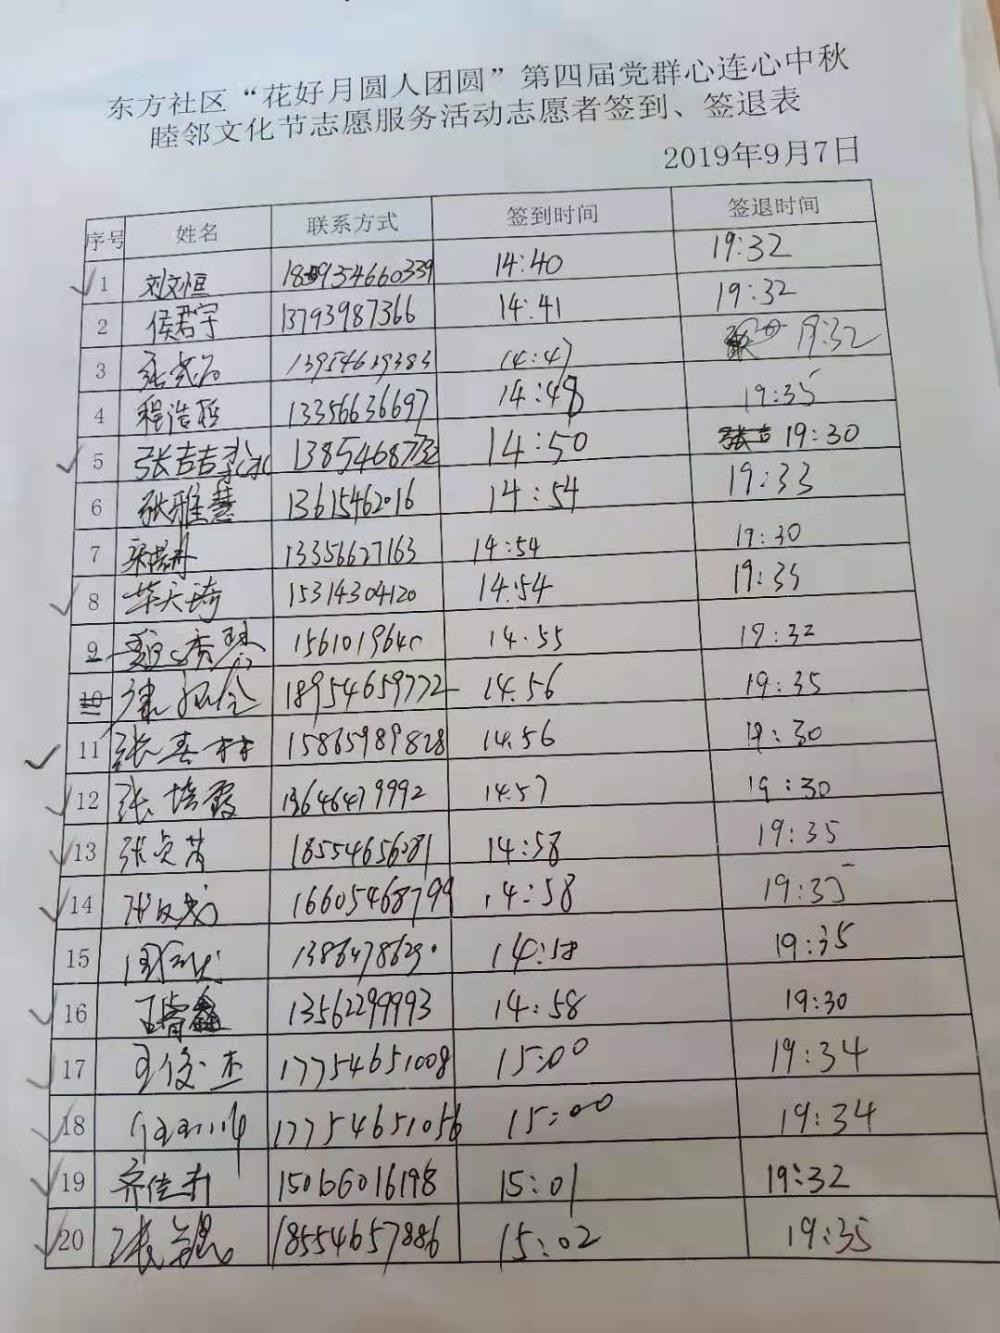 东方社区“花好月圆人团圆”第四届党群心连心中秋
睦邻文化节志愿服务活动志愿者签到、签退表
2019年9月7日
序号 姓名 联系方式 签到时间 签退时间
1 刘文恒 14:40 19:32
2 侯君宇 13793987366 14:41 19:32
3 13954639383 14:47 19:32
4 程浩 13356636697 14:48 19:35
5 张吉吉 14:50 张吉 19:30
6 张雅慧 13615462016 14:54 19:33
7 13356627163 14:54 19:30
8 15314304120 14:54 19:35
9 14.55 19:32
10 18954659772 14.56 19:35
11 张春林 15865989828 14.56 19:30
12 张培霞 13646479992 14.57 19:30
13 张 18554656081 14:58 19:35
14 16605468799 14:58 19:35
15 14:58 19:35
16 13562299993 14:58 19:30
17 王俊杰 17754651008 15:00 19:34
18 17754651056 15:00 19:34
19 齐佳 15066016198 15:01 19:32
20 张 18554657886 15:02 19:35